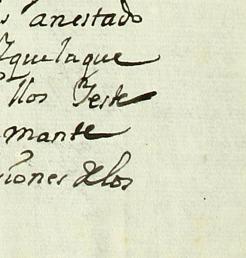 s anestado
Yquelaque
llos Yeste
mante
ciones delos